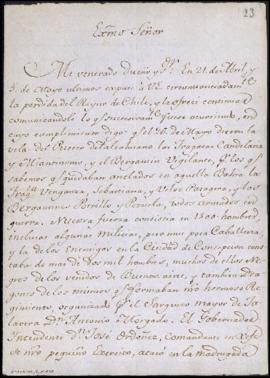 23
Exmo Señor
Mi venerado Dueño y Sr. En 21 de Abril, y
5 de Mayo ultimos expuse á VE circunstanciadamte
la perdida del Reyno de Chile, y le ofreci continuar
comunicandole lo q succesivamte fuese ocurriendo, en
cuyo cumplimiento digo: q el 20 de Mayo dieron la
vela del Puerto de Talcahuano las Fragatas Candelaria
y Marininno, y el Bergantin Vigilante, q los q
sabemos q quedaban anclados en aquella Bahia la
Fragta Venganza, Sebastiana, y Veloz Paxagra, y los
Bergantines Potrillo y Pezuela, todos armados en
guerra. Nuestra fuerza consistia en 1300 hombres
inclusas algunas Milicias, pero muy poca Caballeria,
y la de los Enemigos en la Ciudad de Concepcion cons-
taba de mas de Dos mil hombres, muchos de ellos Ne-
gros de los venidos de Buenos ayres, y tambien Dra-
gones de los mismos q formaban un hermoso Re-
gimiento, organizado pr el Sargento mayor de Ta-
lavera Dn Antonio Morgado. El Gobernador
Intendente Dn José Ordoñez, Comandante en Xefe
de nro pequeño Exercito, atacó en la madrugada